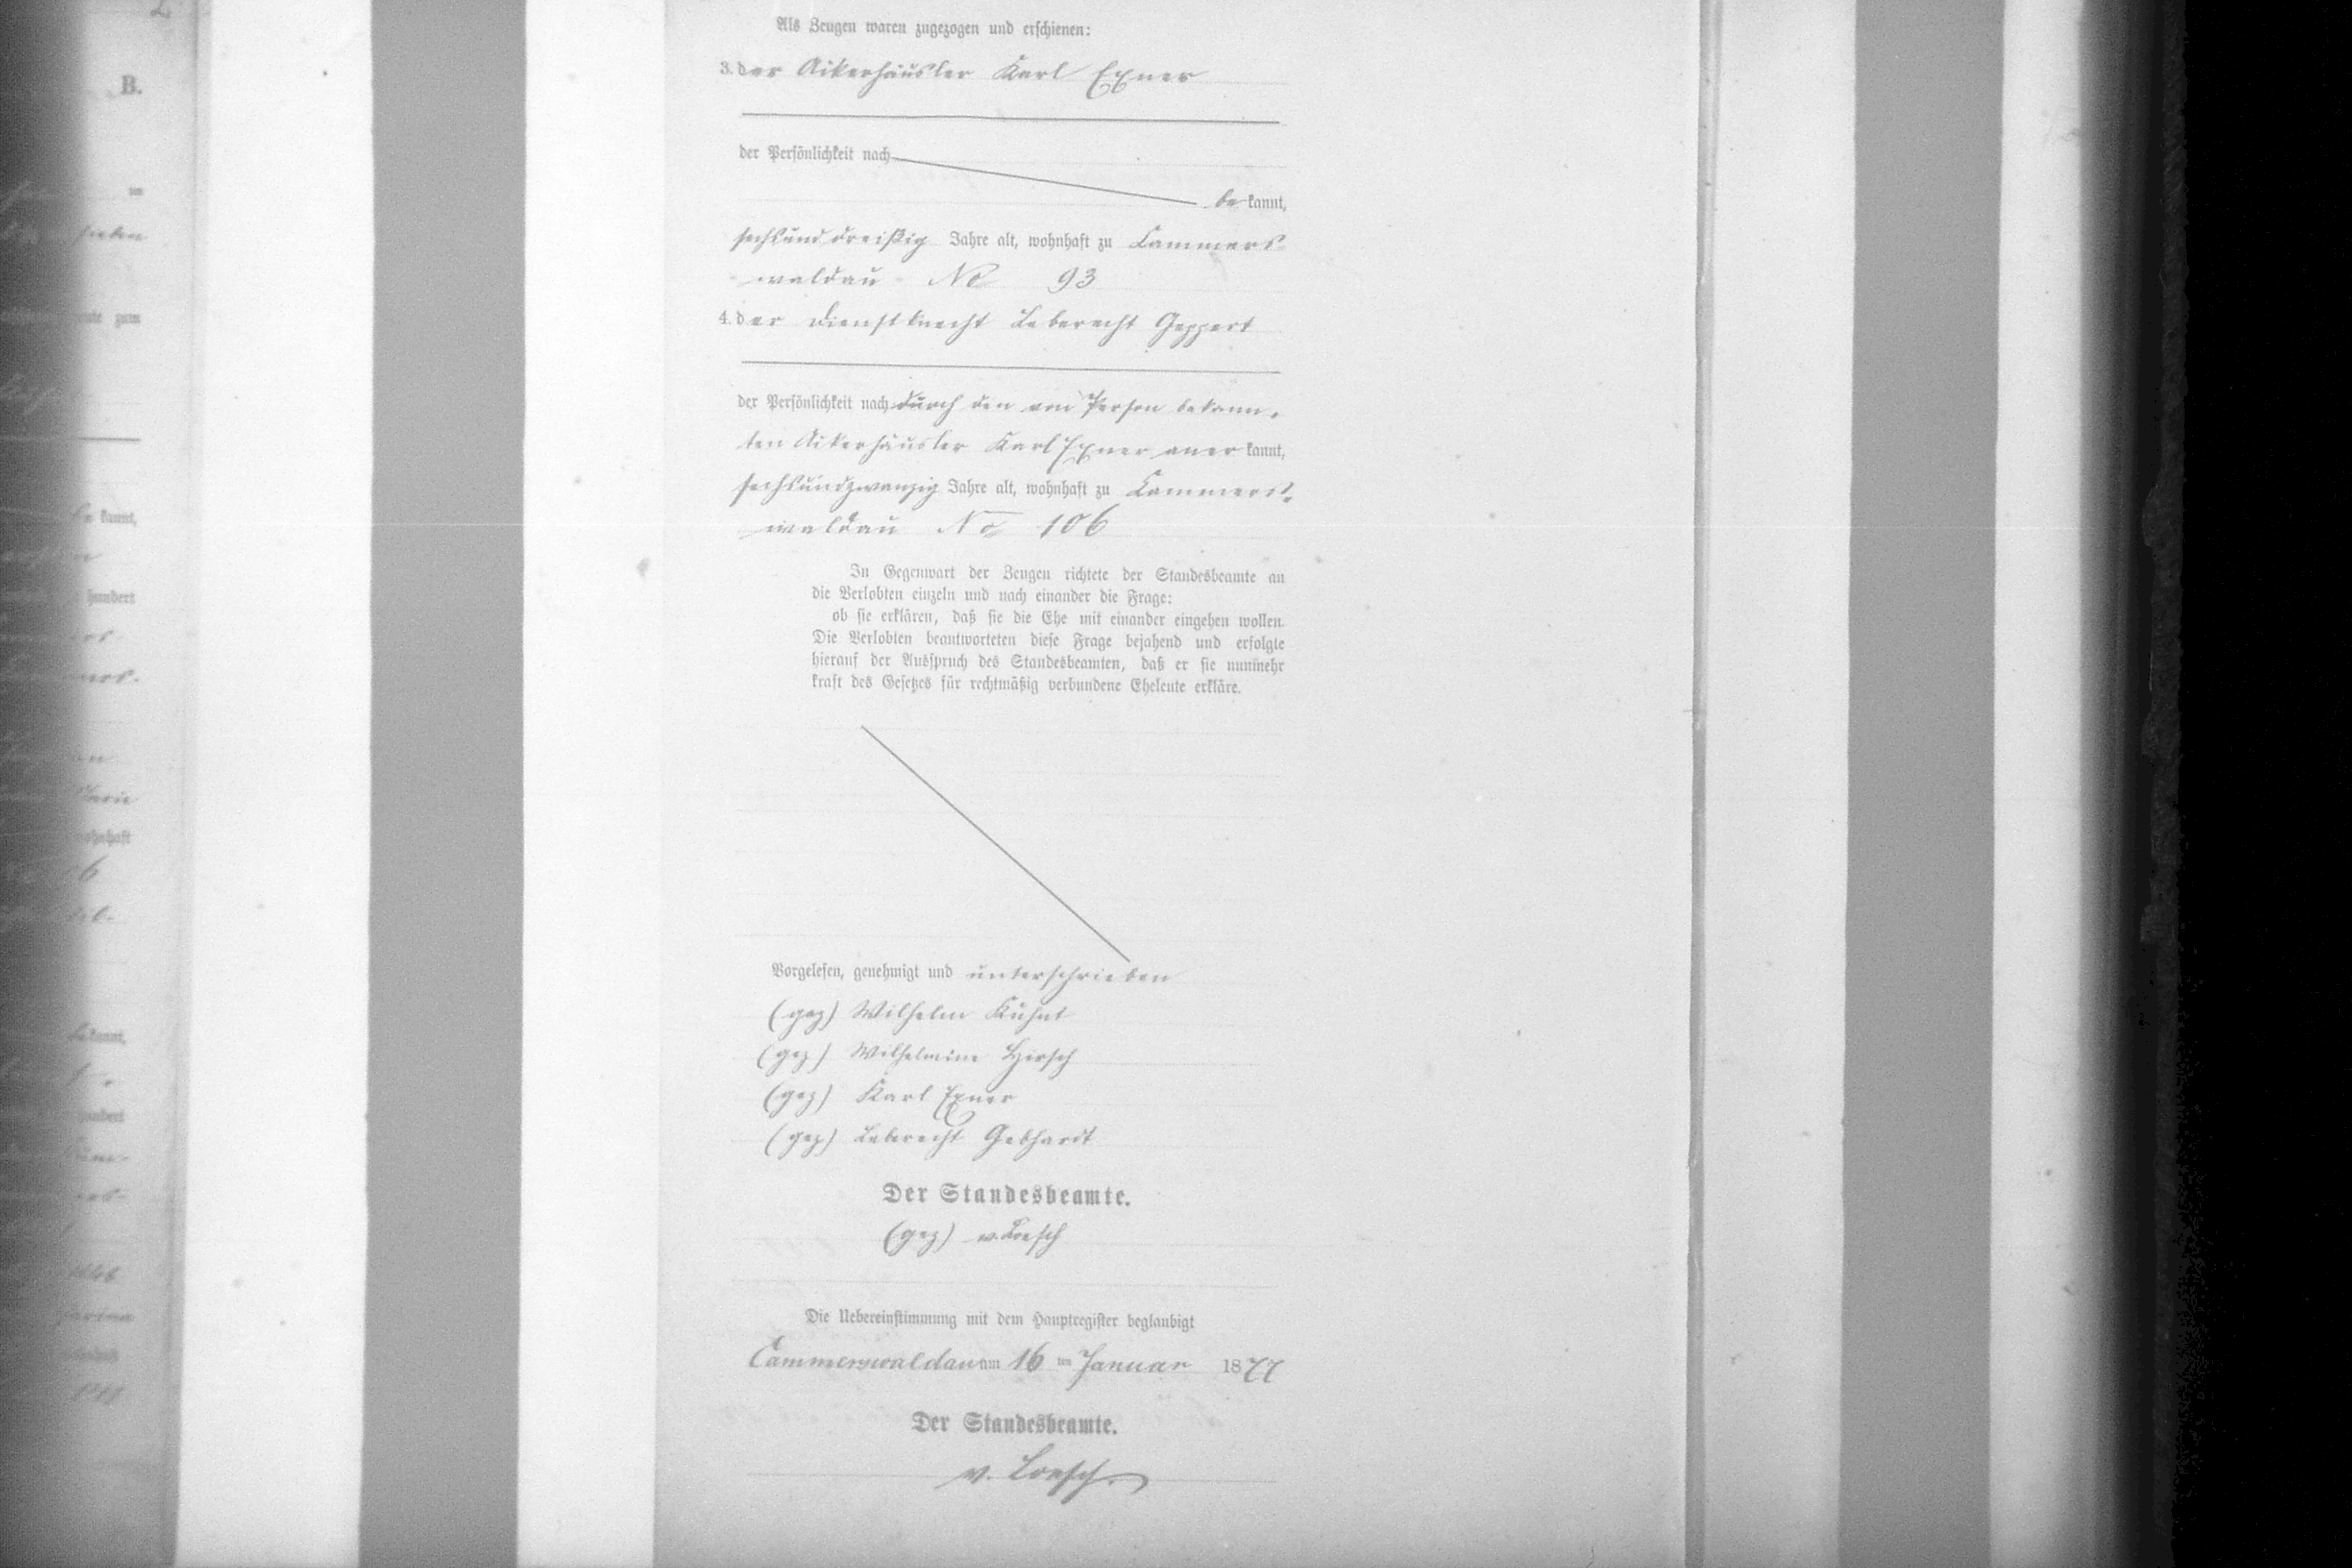 B.
Als Zeugen waren zugezogen und erschienen:
3. der Ackerhäusler Karl Exner
der Persönlichkeit nach
bekannt,
sechsunddreißig Jahre alt, wohnhaft zu Cammers
waldau No 93
4. der Dienstknecht Leberecht Geppert
der Persönlichkeit nach durch den von Person bekann-
ten Ackerhäusler Karl Exner anerkannt,
sechsundzwanzig Jahre alt, wohnhaft zu Cammers-
waldau No 106
In Gegenwart der Zeugen richtete der Standesbeamte an
die Verlobten einzeln und nach einander die Frage:
ob sie erklären, daß sie die Ehe mit einander eingehen wollen.
Die Verlobten beantworteten diese Frage bejahend und erfolgte
hierauf der Ausspruch des Standesbeamten, daß er sie nunmehr
kraft des Gesetzes für rechtmäßig verbundene Eheleute erkläre.
Vorgelesen, genehmigt und unterschrieben
(gez) Wilhelm Kuhnt
(gez) Wilhelmine Hirsch
(gez) Karl Exner
(gez) Leberecht Gebhardt
Der Standesbeamte.
(gez) v. Loesch
Die Uebereinstimmung mit dem Hauptregister beglaubigt
Cammerswaldau am 16 ten Januar 1877
Der Standesbeamte.
v. Loesch.